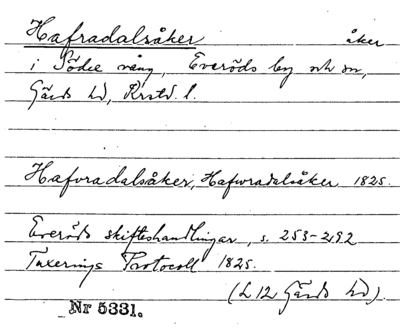 Hafradalsåker åker
i Södre vång, Everöds by och sn,
Gärds hd, Krstd. l.
Hafvradalsåker, Hafwradalsåker 1825.
Everöds skifteshandlingar, s. 253-292
Taxerings Protocoll 1825.
(L 12 Gärds hd).
Nr 5331.